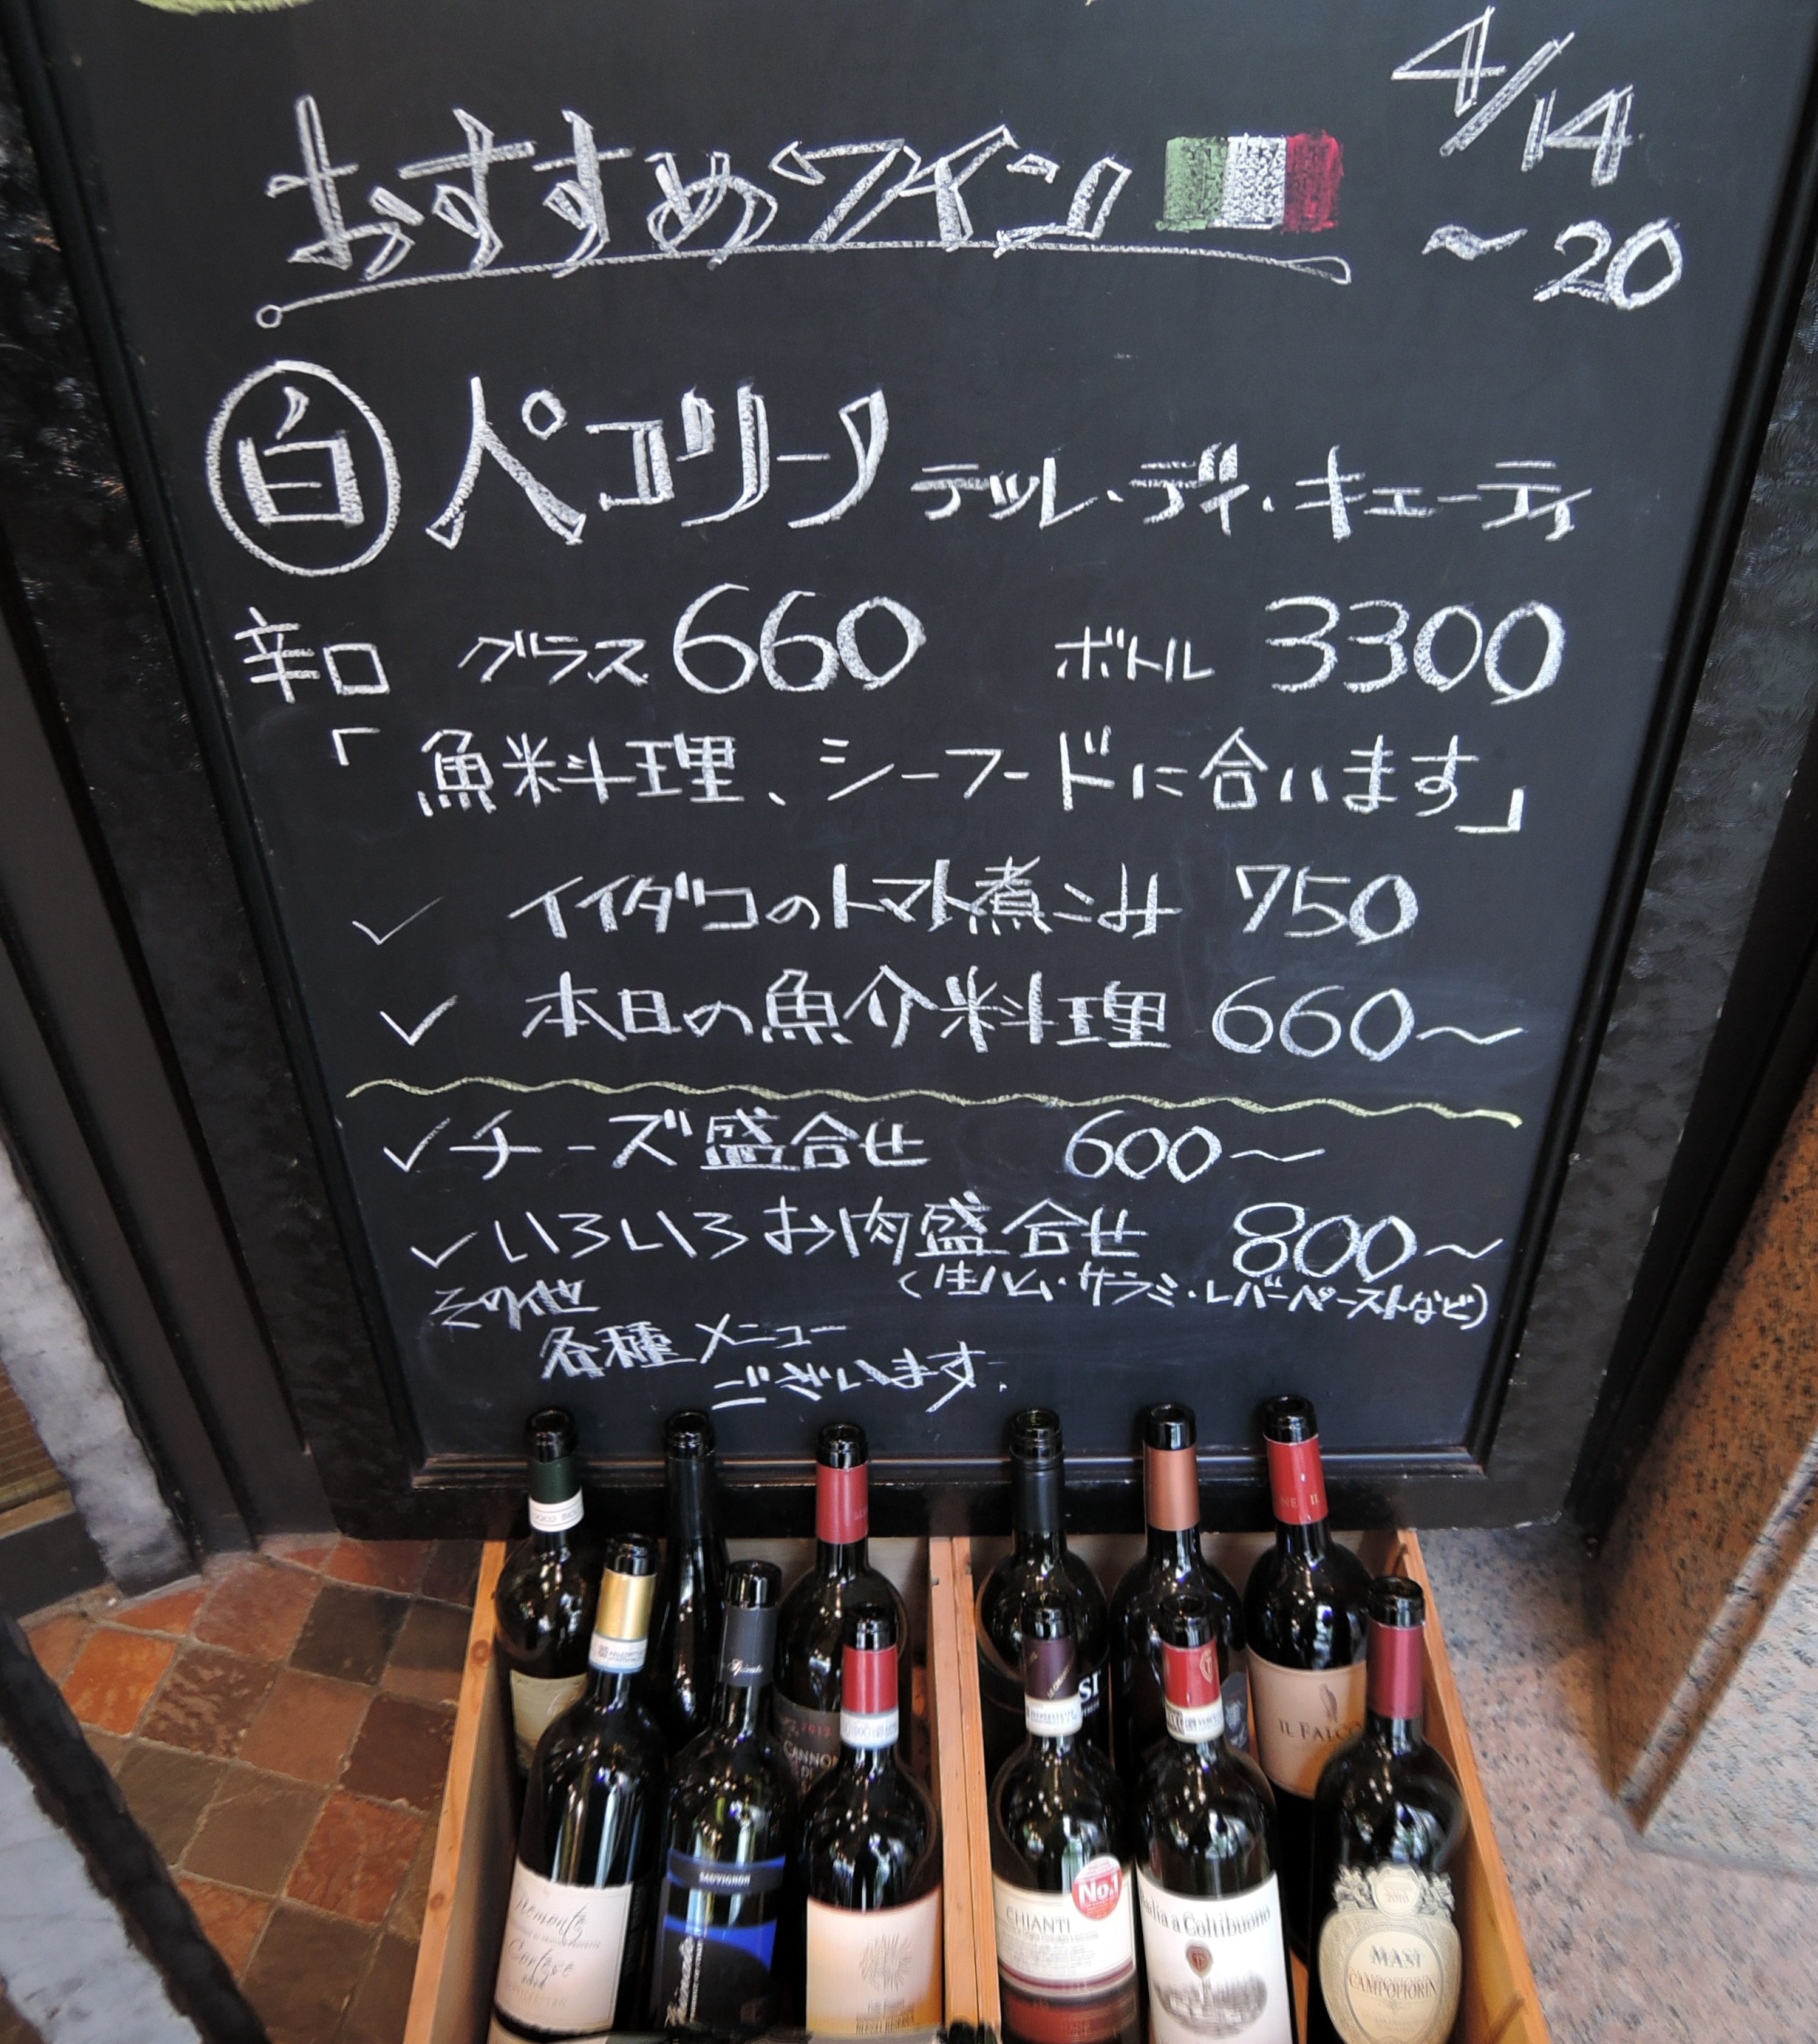 4/14
～20
おすすめワイン
白 ペコリーノ テッレ・ディ・キエーティ
辛口 グラス 660 ボトル 3300
「魚料理、シーフードに合います」
✓ イイダコのトマト煮こみ 750
✓ 本日の魚介料理 660～
✓チーズ盛合せ 600～
✓いろいろお肉盛合せ 800～
(生ハム・サラミ・レバーペーストなど)
その他
各種メニュー
ございます。
NE IL
SI
IL FALCO
2012
CANNON
DI
SAUVIGNON
Piemonte
Cortese
No.1
CHIANTI
Badia a Coltibuono
MASI
CAMPOFIORIN